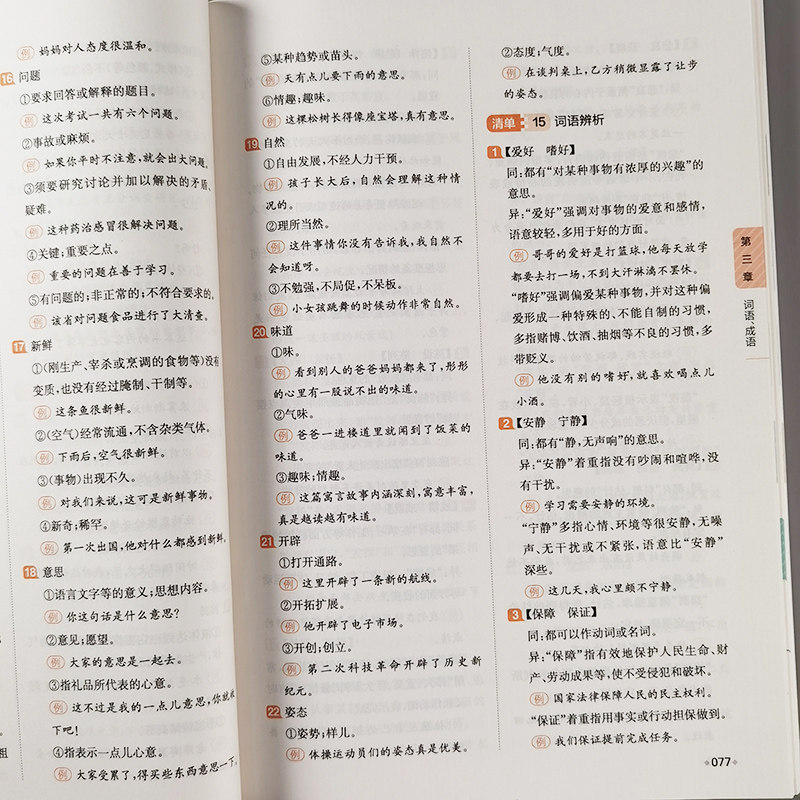 例 妈妈对人态度很温和。
16 问题
①要求回答或解释的题目。
例 这次考试一共有六个问题。
②事故或麻烦。
例 如果你平时不注意,就会出大问题。
③须要研究讨论并加以解决的矛盾、
疑难。
例 这种药治感冒很解决问题。
④关键;重要之点。
例 重要的问题在善于学习。
⑤有问题的;非正常的;不符合要求的。
例 该省对问题食品进行了大清查。
17 新鲜
①(刚生产、宰杀或烹调的食物等)没有
变质,也没有经过腌制、干制等。
例 这条鱼很新鲜。
②(空气)经常流通,不含杂类气体。
例 下雨后,空气很新鲜。
③(事物)出现不久。
例 对我们来说,这可是新鲜事物。
④新奇;稀罕。
例 第一次出国,他对什么都感到新鲜。
18 意思
①语言文字等的意义;思想内容。
例 你这句话是什么意思?
②意见;愿望。
例 大家的意思是一起去。
③指礼品所代表的心意。
例 这不过是我的一点儿意思,你就收
下吧!
④指表示一点儿心意。
例 大家受累了,得买些东西意思一下,
⑤某种趋势或苗头。
例 天有点儿要下雨的意思。
⑥情趣;趣味。
例 这棵松树长得像座宝塔,真有意思。
19 自然
①自由发展,不经人力干预。
例 孩子长大后,自然会理解这种情
况的。
②理所当然。
例 这件事情你没有告诉我,我自然不
会知道呀。
③不勉强,不局促,不呆板。
例 小女孩跳舞的时候动作非常自然。
20 味道
①味。
例 看到别人的爸爸妈妈都来了,彤彤
的心里有一股说不出的味道。
②气味。
例 爸爸一进楼道里就闻到了饭菜的
味道。
③趣味;情趣。
例 这篇寓言故事内涵深刻,寓意丰富,
真是越读越有味道。
21 开辟
①打开通路。
例 这里开辟了一条新的航线。
②开拓扩展。
例 他开辟了电子市场。
③开创;创立。
例 第二次科技革命开辟了历史新
纪元。
22 姿态
①姿势;样儿。
例 体操运动员们的姿态真是优美。
②态度;气度。
例 在谈判桌上,乙方稍微显露了让步
的姿态。
清单 15 词语辨析
1【爱好 嗜好】
同:都有“对某种事物有浓厚的兴趣”的
意思。
异:“爱好”强调对事物的爱意和感情,
语意较轻,多用于好的方面。
例 哥哥的爱好是打篮球,他每天放学
都要去打一场,不到大汗淋漓不罢休。
“嗜好”强调偏爱某种事物,并对这种偏
爱形成一种特殊的、不能自制的习惯,
多指赌博、饮酒、抽烟等不良的习惯,多
带贬义。
例 他没有别的嗜好,就喜欢喝点儿
小酒。
2【安静 宁静】
同:都有“静,无声响”的意思。
异:“安静”着重指没有吵闹和喧哗,没
有干扰。
例 学习需要安静的环境。
“宁静”多指心情、环境等很安静,无噪
声、无干扰或不紧张,语意比“安静”
深些。
例 这几天,我心里颇不宁静。
3【保障 保证】
同:都可以作动词或名词。
异:“保障”指有效地保护人民生命、财
产、劳动成果等,使不受侵犯和破坏。
例 国家法律保障人民的民主权利。
“保证”着重指用事实或行动担保做到。
例 我们保证提前完成任务。
第三章
词语·成语
077